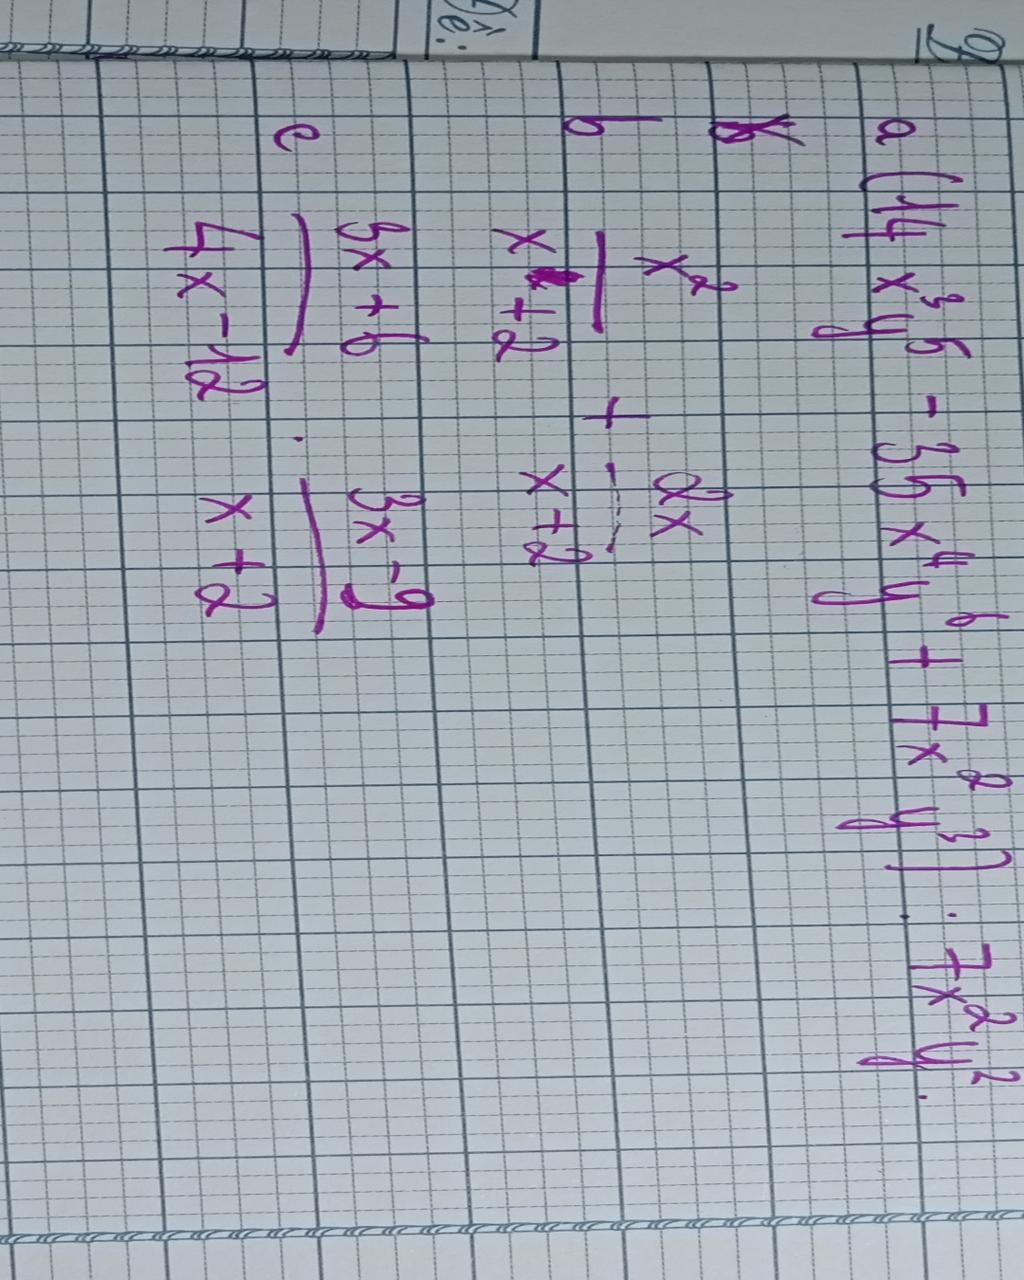 a (14x³y⁵ - 35x⁴y⁶ + 7x²y³) : 7x²y².
b x²/x+2 + 2x/x+2
c 3x+6/4x-12 . 3x-9/x+2